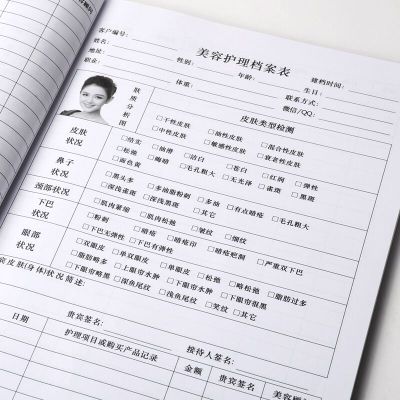 美容护理档案表
客户编号:
建档时间:
姓名:
性别:
年龄:
生日:
地址:
联系方式:
职业:
体重:
微信/QQ:
肤质分析图
皮肤类型检测
□干性皮肤 □油性皮肤 □混合性皮肤
□中性皮肤 □敏感性皮肤 □衰老性皮肤
皮肤状况
□结实 □油滑 □洁白 □苍白 □红润 □弹性
□松弛 □晦暗 □毛孔粗大 □无光泽 □雀斑 □黑斑
□面色黄
鼻子状况
□黑头多 □多油脂粉刺 □多油 □有点暗疮 □毛孔粗大
□深浅雀斑 □深浅黑斑 □其它
颈部状况
□肌肉紧缩 □肌肉松弛 □皱纹 □细纹
下巴状况
□粉刺 □暗疮 □暗疮印 □暗疮疤痕 □严重双下巴
□下巴无弹性 □下巴有弹性
眼部状况
□双眼皮 □单双眼皮 □单眼皮 □松弛 □略松弛 □脂肪过多
□脂肪略多 □下眼帘水肿 □下眼帘很黑
□下眼帘略黑 □深鱼尾纹 □浅鱼尾纹 □笑纹 □其它
皮肤(身体)状况简述:
贵宾签名:
接待人签名:
日期
护理项目或购买产品记录
金额
贵宾签名